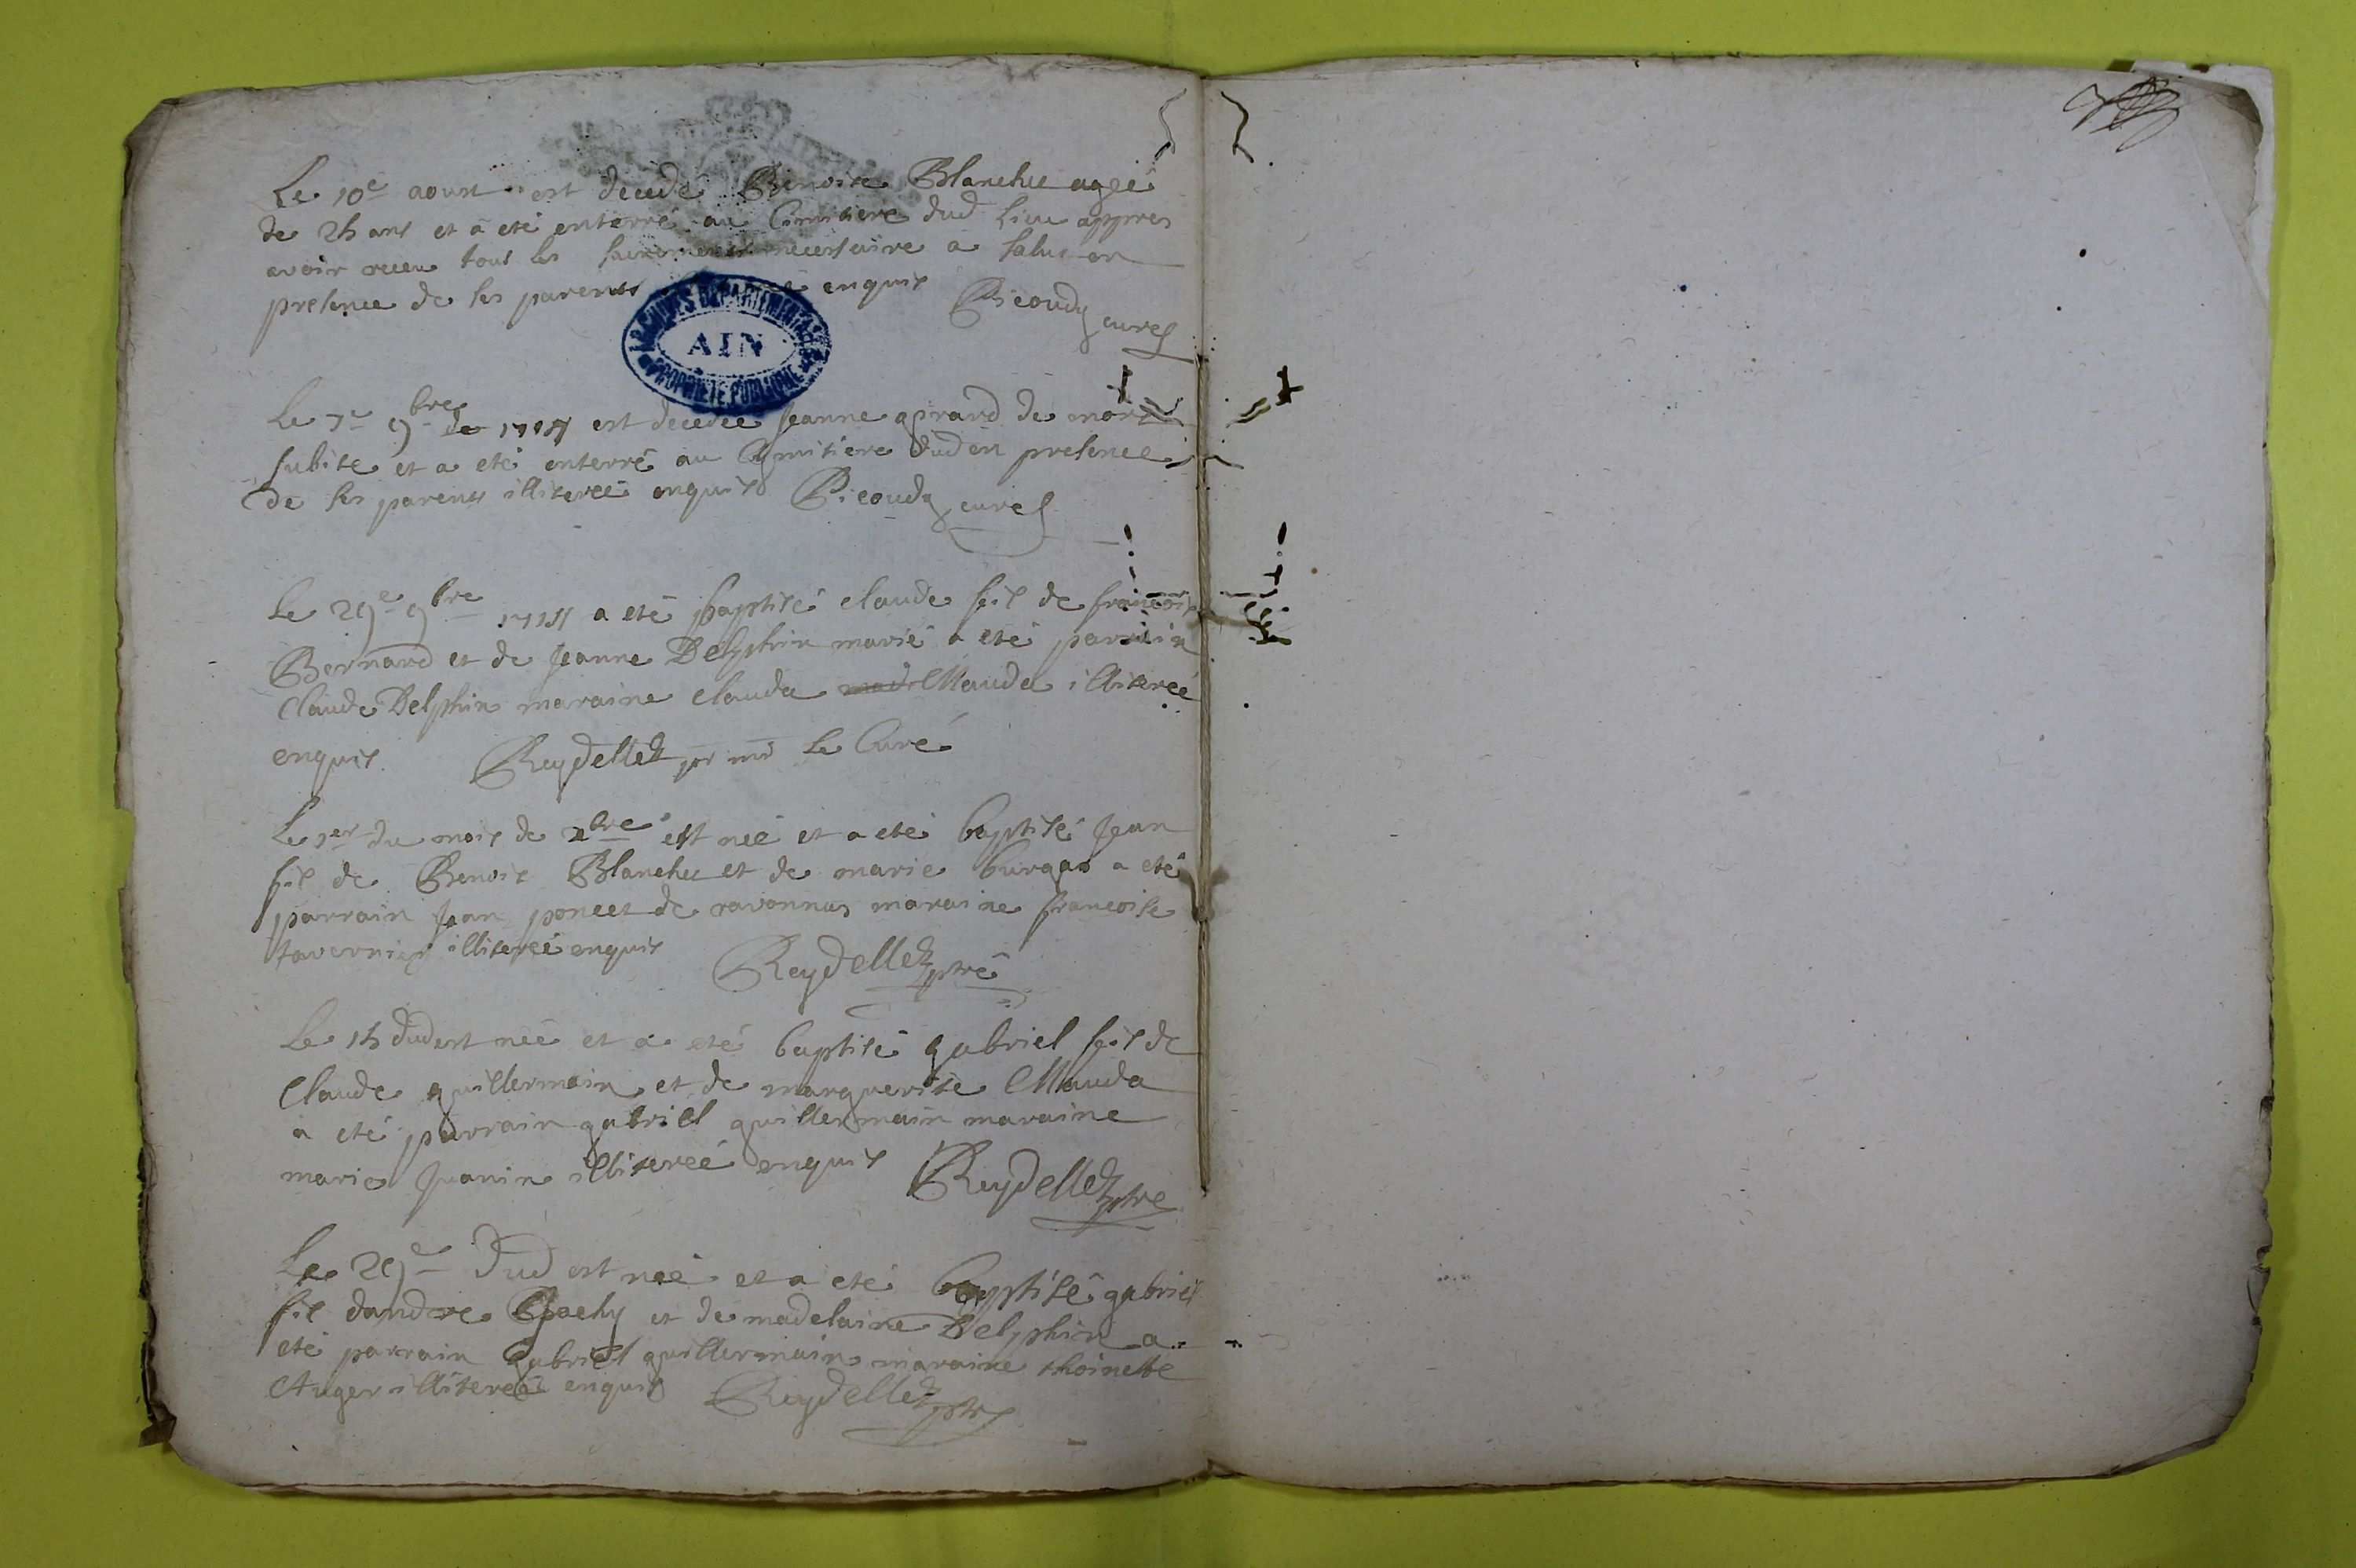 Le 10e aoust est decedé Benoite Blanchet agée
de 25 ans et a eté enterré au Cimitiere dud Lieu appres
avoir receu tous les sacrements necessaire a salut en
presence de ses parents enquis Picoudy curé
ARCHIVES DEPARTEMENTALES
AIN
PROPRIETE PUBLIQUE
Le 7e 9bre de est decedée Jeanne girard de mort
subite et a eté enterré au Cymitiere dud en presence
de ses parents illiteréé enquis Picoudy curé
Le 29e 9bre a eté baptisé claude fil de francois
Bernard et de Jeanne Delphin marié a eté parrain
Claude Delphin maraine clauda Mauda illiteréé
enquis Reydellet pr mr Le Curé
Le 1er du mois de xbre est néé et a eté baptisé Jean
fil de Benoit Blanchet et de marie burgat a eté
parrain Jean poncet de ravonnas maraine francoise
tavernier illiteréé enquis Reydellet ptre
Le 15 dud est néé et a eté baptisé gabriel fil de
Claude guillermain et de marguerite Mauda
a eté parrain gabriel guillermain maraine
marie Jeanin illiteréé enquis Reydellet ptre
Le 29e dud est néé et a eté baptisé gabriel
fil dandre et de madelaine Delphin a
eté parrain gabriel guillermain maraine thoinette
Auger illiteréé enquis Reydellet ptre